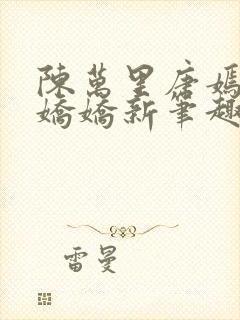 陳萬里唐嫣
嬌嬌新筆趣
雷曼